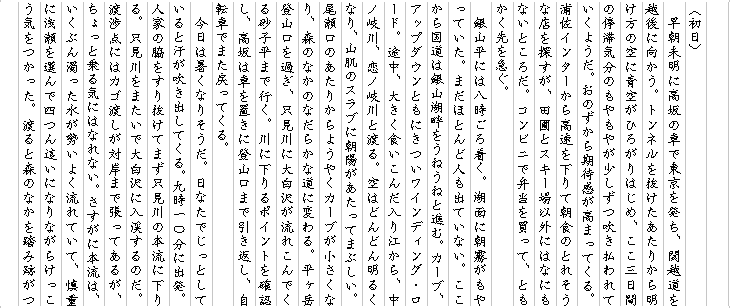 〈初日〉
早朝未明に高坂の車で東京を発ち、関越道を
越後に向かう。トンネルを抜けたあたりから明
け方の空に青空がひろがりはじめ、ここ三日間
の停滞気分のもやもやが少しずつ吹き払われて
いくようだ。おのずから期待感が高まってくる。
浦佐インターから高速を下りて朝食のとれそう
な店を探すが、田圃とスキー場以外にはなにも
ないところだ。コンビニで弁当を買って、とも
かく先を急ぐ。
銀山平には八時ごろ着く。湖面に朝霧がもや
っていた。まだほとんど人も出ていない。ここ
から国道は銀山湖畔をうねうねと進む。カーブ、
アップダウンともにきついワインディング・ロ
ード。途中、大きく食いこんだ入り江から、中
ノ岐川、恋ノ岐川と渡る。空はどんどん明るく
なり、山肌のスラブに朝陽があたってまぶしい。
尾瀬口のあたりからようやくカーブが小さくな
り、森のなかのなだらかな道に変わる。平ヶ岳
登山口を過ぎ、只見川に大白沢が流れこんでく
る砂子平まで行く。川に下りるポイントを確認
し、高坂は車を置きに登山口まで引き返し、自
転車でまた戻ってくる。
今日は暑くなりそうだ。日なたでじっとして
いると汗が吹き出してくる。九時一〇分に出発。
人家の脇をすり抜けてまず只見川の本流に下り
る。只見川をまたいで大白沢に入渓するのだ。
渡渉点にはカゴ渡しが対岸まで張ってあるが、
ちょっと乗る気にはなれない。さすがに本流は、
いくぶん濁った水が勢いよく流れていて、慎重
に浅瀬を選んで四つん這いになりながらけっこ
う気をつかった。渡ると森のなかを踏み跡が